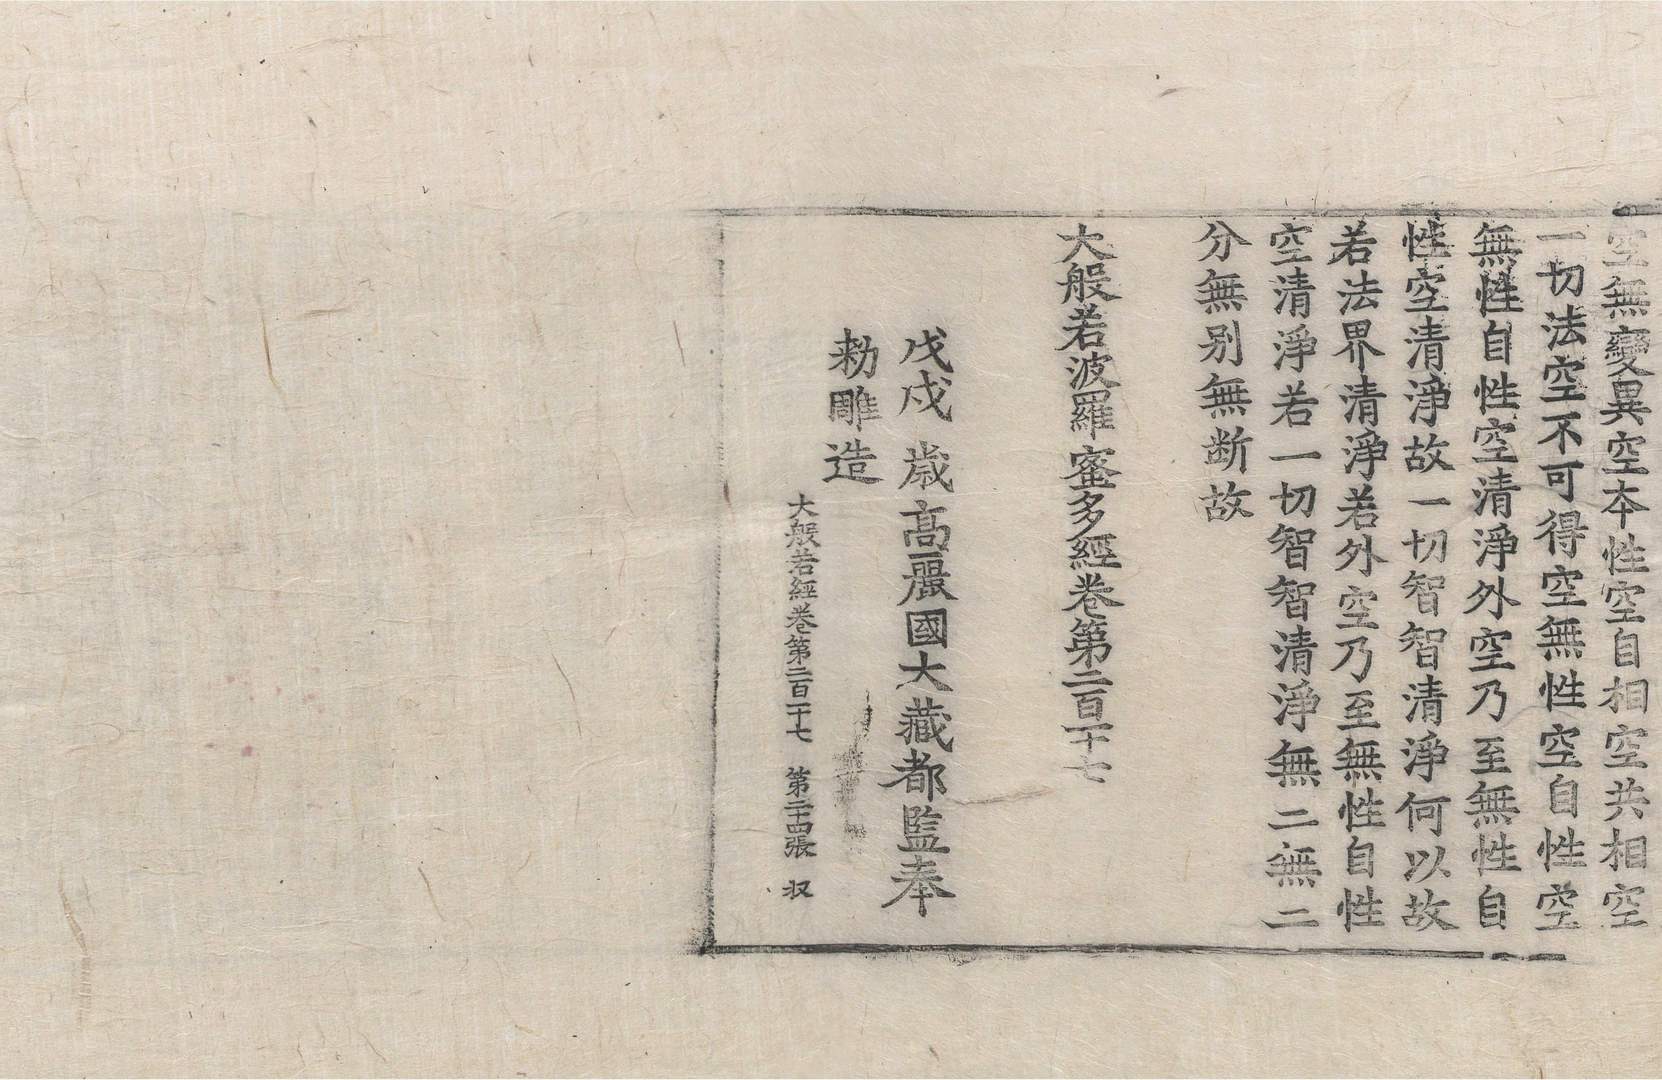 空無變異空本性空自相空共相空
一切法空不可得空無性空自性空
無性自性空清淨外空乃至無性自
性空清淨故一切智智清淨何以故
若法界清淨若外空乃至無性自性
空清淨若一切智智清淨無二無二
分無別無断故
大般若波羅蜜多經卷第二百一十七
戊戌歲高麗國大藏都監奉
勅雕造
大般若經卷第二百一十七 第二十四張 収